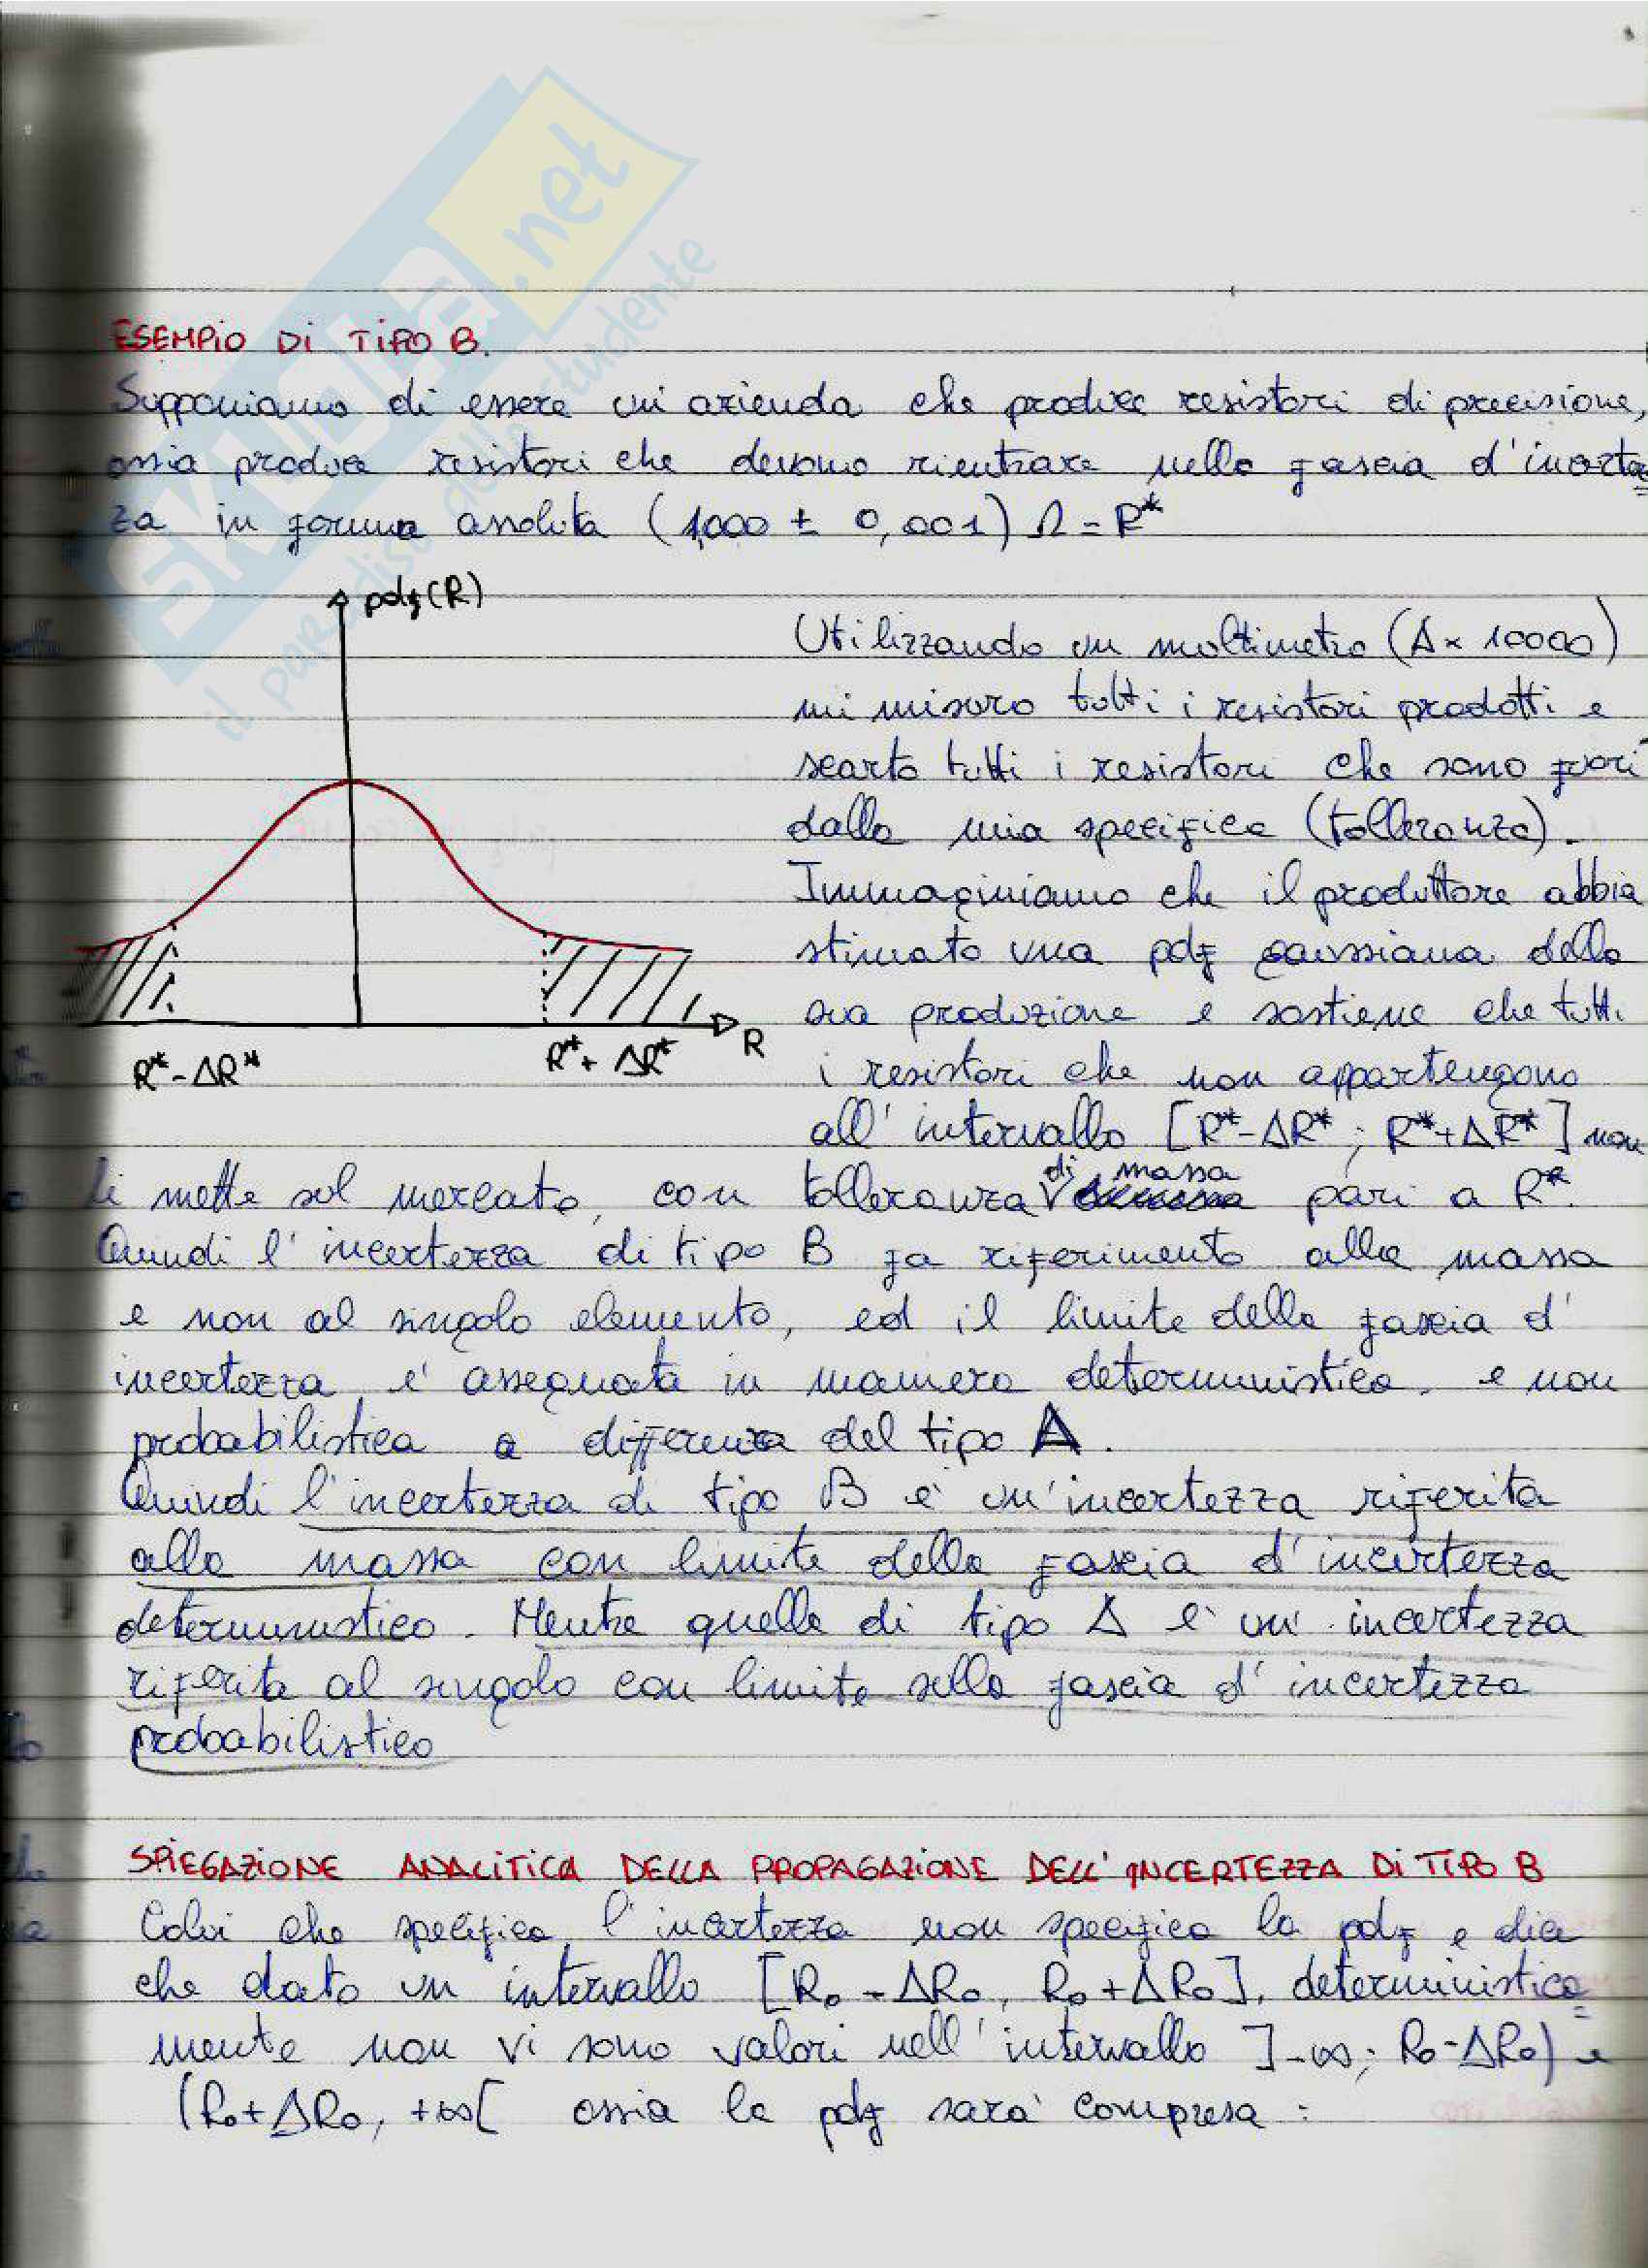 SKUOLA.net
il paradiso dello studente
ESEMPIO Di TiPO B.
Supponiamo di essere un'azienda che produce resistori di precisione,
ossia produce resistori che devono rientrare nella fascia d'incertez
za in forma assoluta (1000 ± 0,001) Ω = R*
pdf(R)
R
R*-ΔR*
R*+ ΔR*
Utilizzando un multimetro (Δ× 10000)
mi misuro tutti i resistori prodotti e
scarto tutti i resistori che sono fuori
dalla mia specifica (tolleranza).
Immaginiamo che il produttore abbia
stimato una pdf gaussiana della
sua produzione e sostiene che tutti
i resistori che non appartengono
all' intervallo [R*-ΔR* ; R*+ΔR*] non
li mette sul mercato, con tolleranza di massa pari a R*.
Quindi l' incertezza di tipo B fa riferimento alla massa
e non al singolo elemento, ed il limite della fascia d'
incertezza e' assegnata in maniera deterministica, e non
probabilistica a differenza del tipo A.
Quindi l'incertezza di tipo B e' un'incertezza riferita
alla massa con limite della fascia d'incertezza
deterministico. Mentre quella di tipo A e' un' incertezza
riferita al singolo con limite sulla fascia d' incertezza
probabilistico
SPiEGAZiONE ANALiTiCA DELLA PROPAGAZiONE DELL' iNCERTEZZA Di TiPO B
Colui che specifica l'incertezza non specifica la pdf e dice
che dato un intervallo [R₀ - ΔR₀, R₀ + ΔR₀], deterministica
mente non vi sono valori nell' intervallo ]-∞; R₀-ΔR₀) e
(R₀+ΔR₀, +∞[ ossia la pdf sara' compresa :